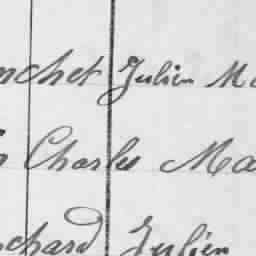 nchet Julien Ma
n Charles Ma
chard Julien